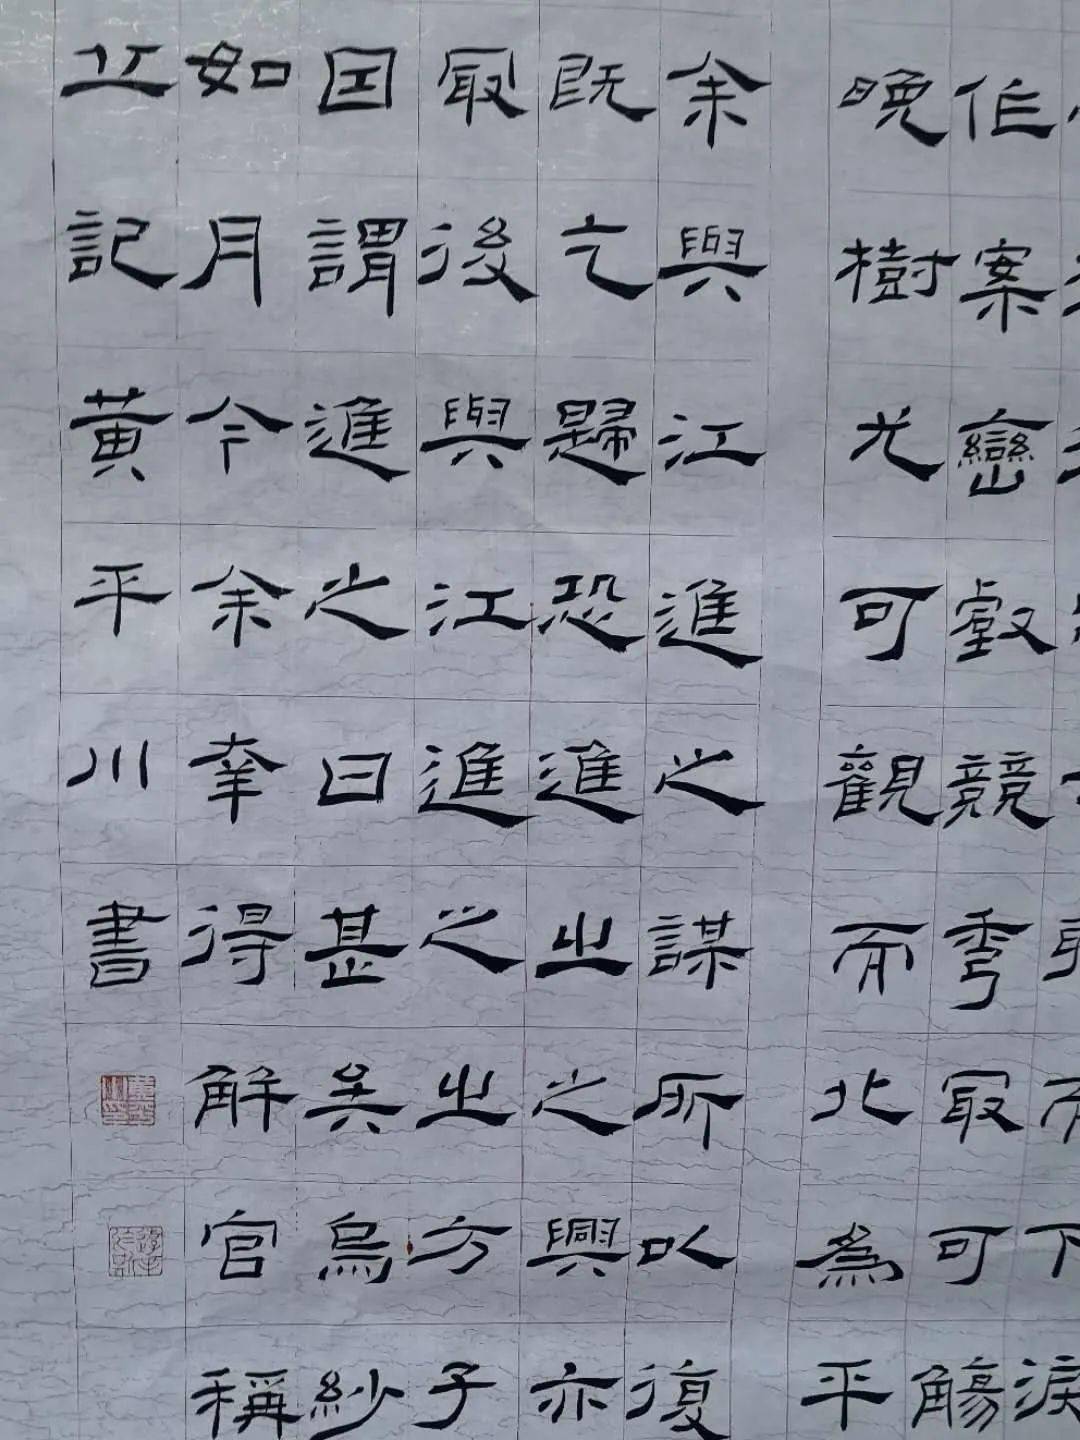 作案巒壑競秀最可觴
晚樹尤可觀而北為平
余與江進之謀所以復
既乞歸恐進之之興亦
最後與江進之之方子
因謂進之曰甚矣烏紗
如月今余幸得解官稱
丘記黃平川書